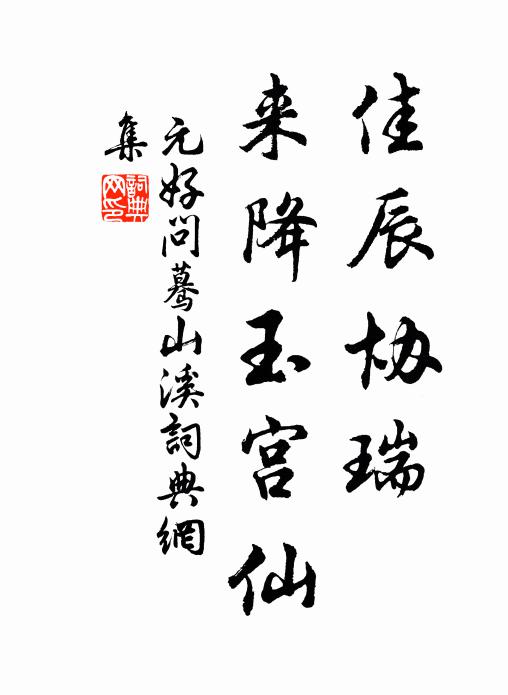 佳辰协瑞
来降玉宫仙
元好问蓦山溪詞典網
集
詞典网印